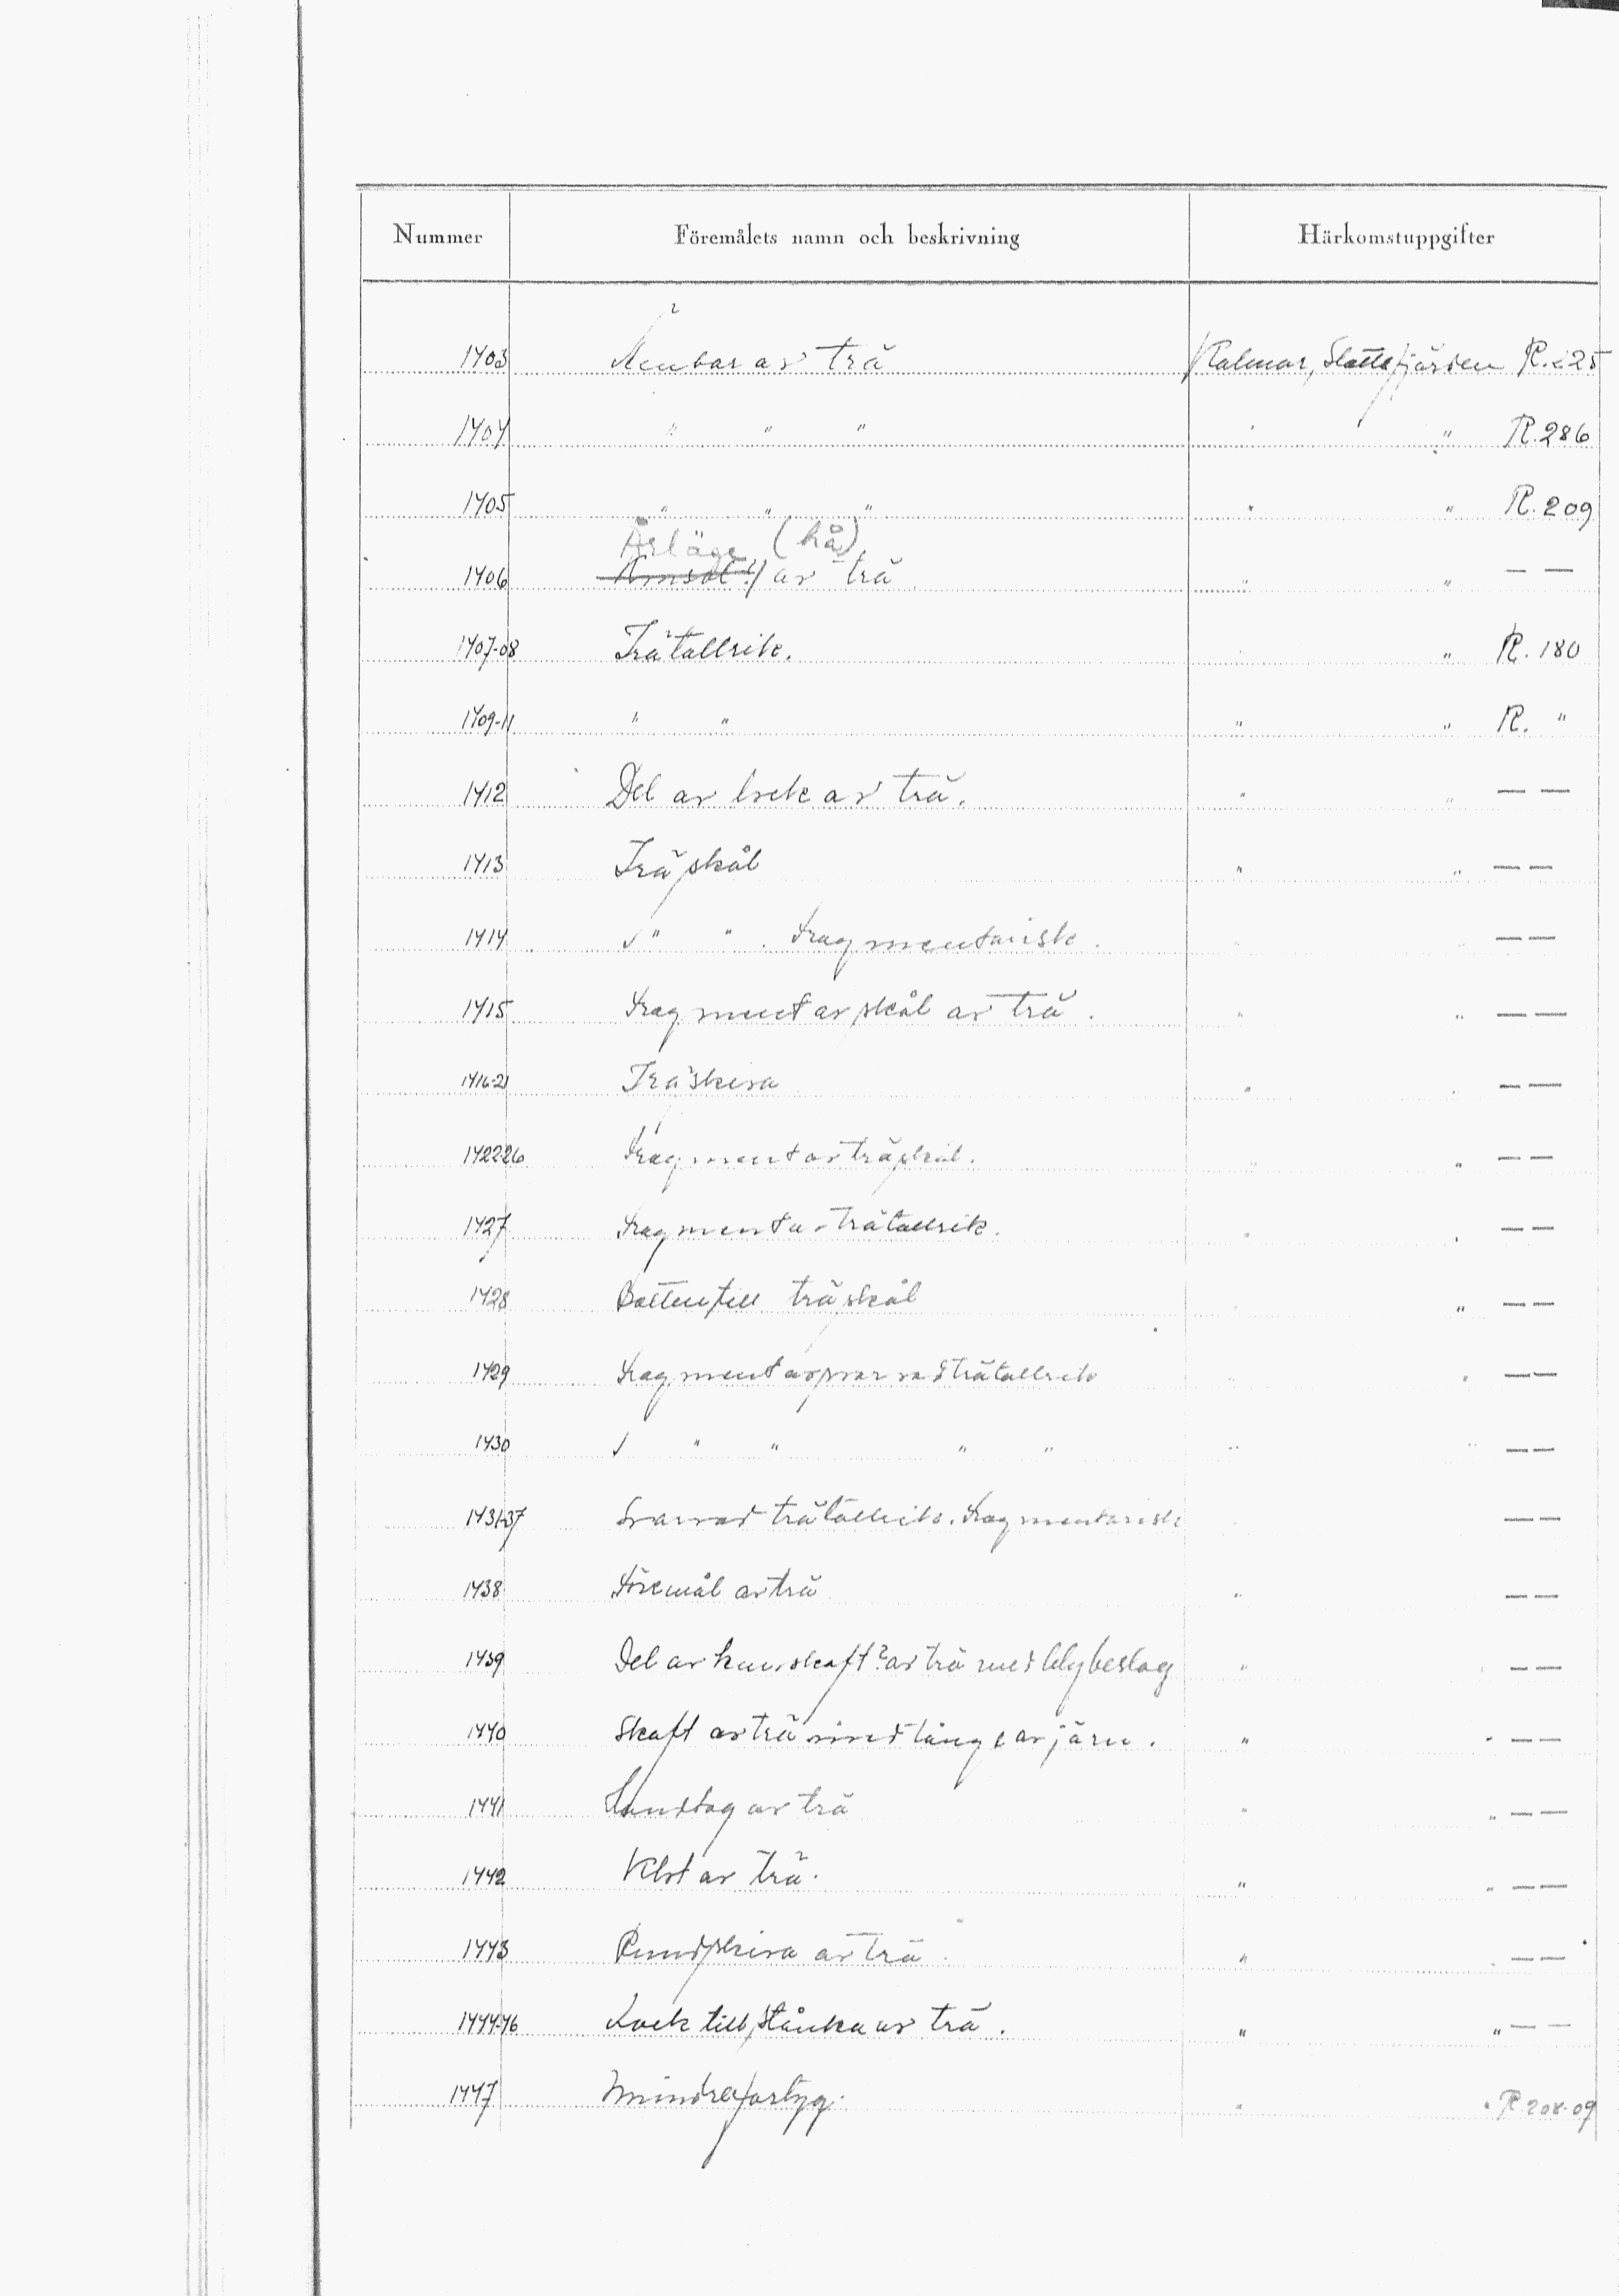 Nummer Föremålets namn och beskrivning Härkomstuppgifter
1403 Ämbar av trä Kalmar, Slottsfjärden R. 225
1404 " " " " " R. 286
1405 " " " " " R. 209
Årläge (hå)
1406 av trä " " — —
1407-08 Trätallrik. " " R. 180
1409-11 " " " " R. "
1412 Del av lock av trä. " " — —
1413 Träskål " " — —
1414 " " . Fragmentarisk. " " — —
1415 Fragment av skål av trä. " " — —
1416-21 Träskiva " " — —
1422-26 Fragment av träskål. " " — —
1427 Fragment av trätallrik. " " — —
1428 Botten till träskål " " — —
1429 Fragment av svarvad trätallrik " " — —
1430 " " " " " " — —
1431-37 Svarvad trätallrik. Fragmentarisk — —
1438 Föremål av trä " — —
1439 Del av knivskaft? av trä med blybeslag " " — —
1440 Skaft av trä med tånge av järn. " " — —
1441 Handtag av trä " " — —
1442 Klot av trä. " " — —
1443 Rundskiva av trä. " " — —
1444-46 Lock till stånka av trä. " " — —
1447 Mindre fartyg. " " R 208-09